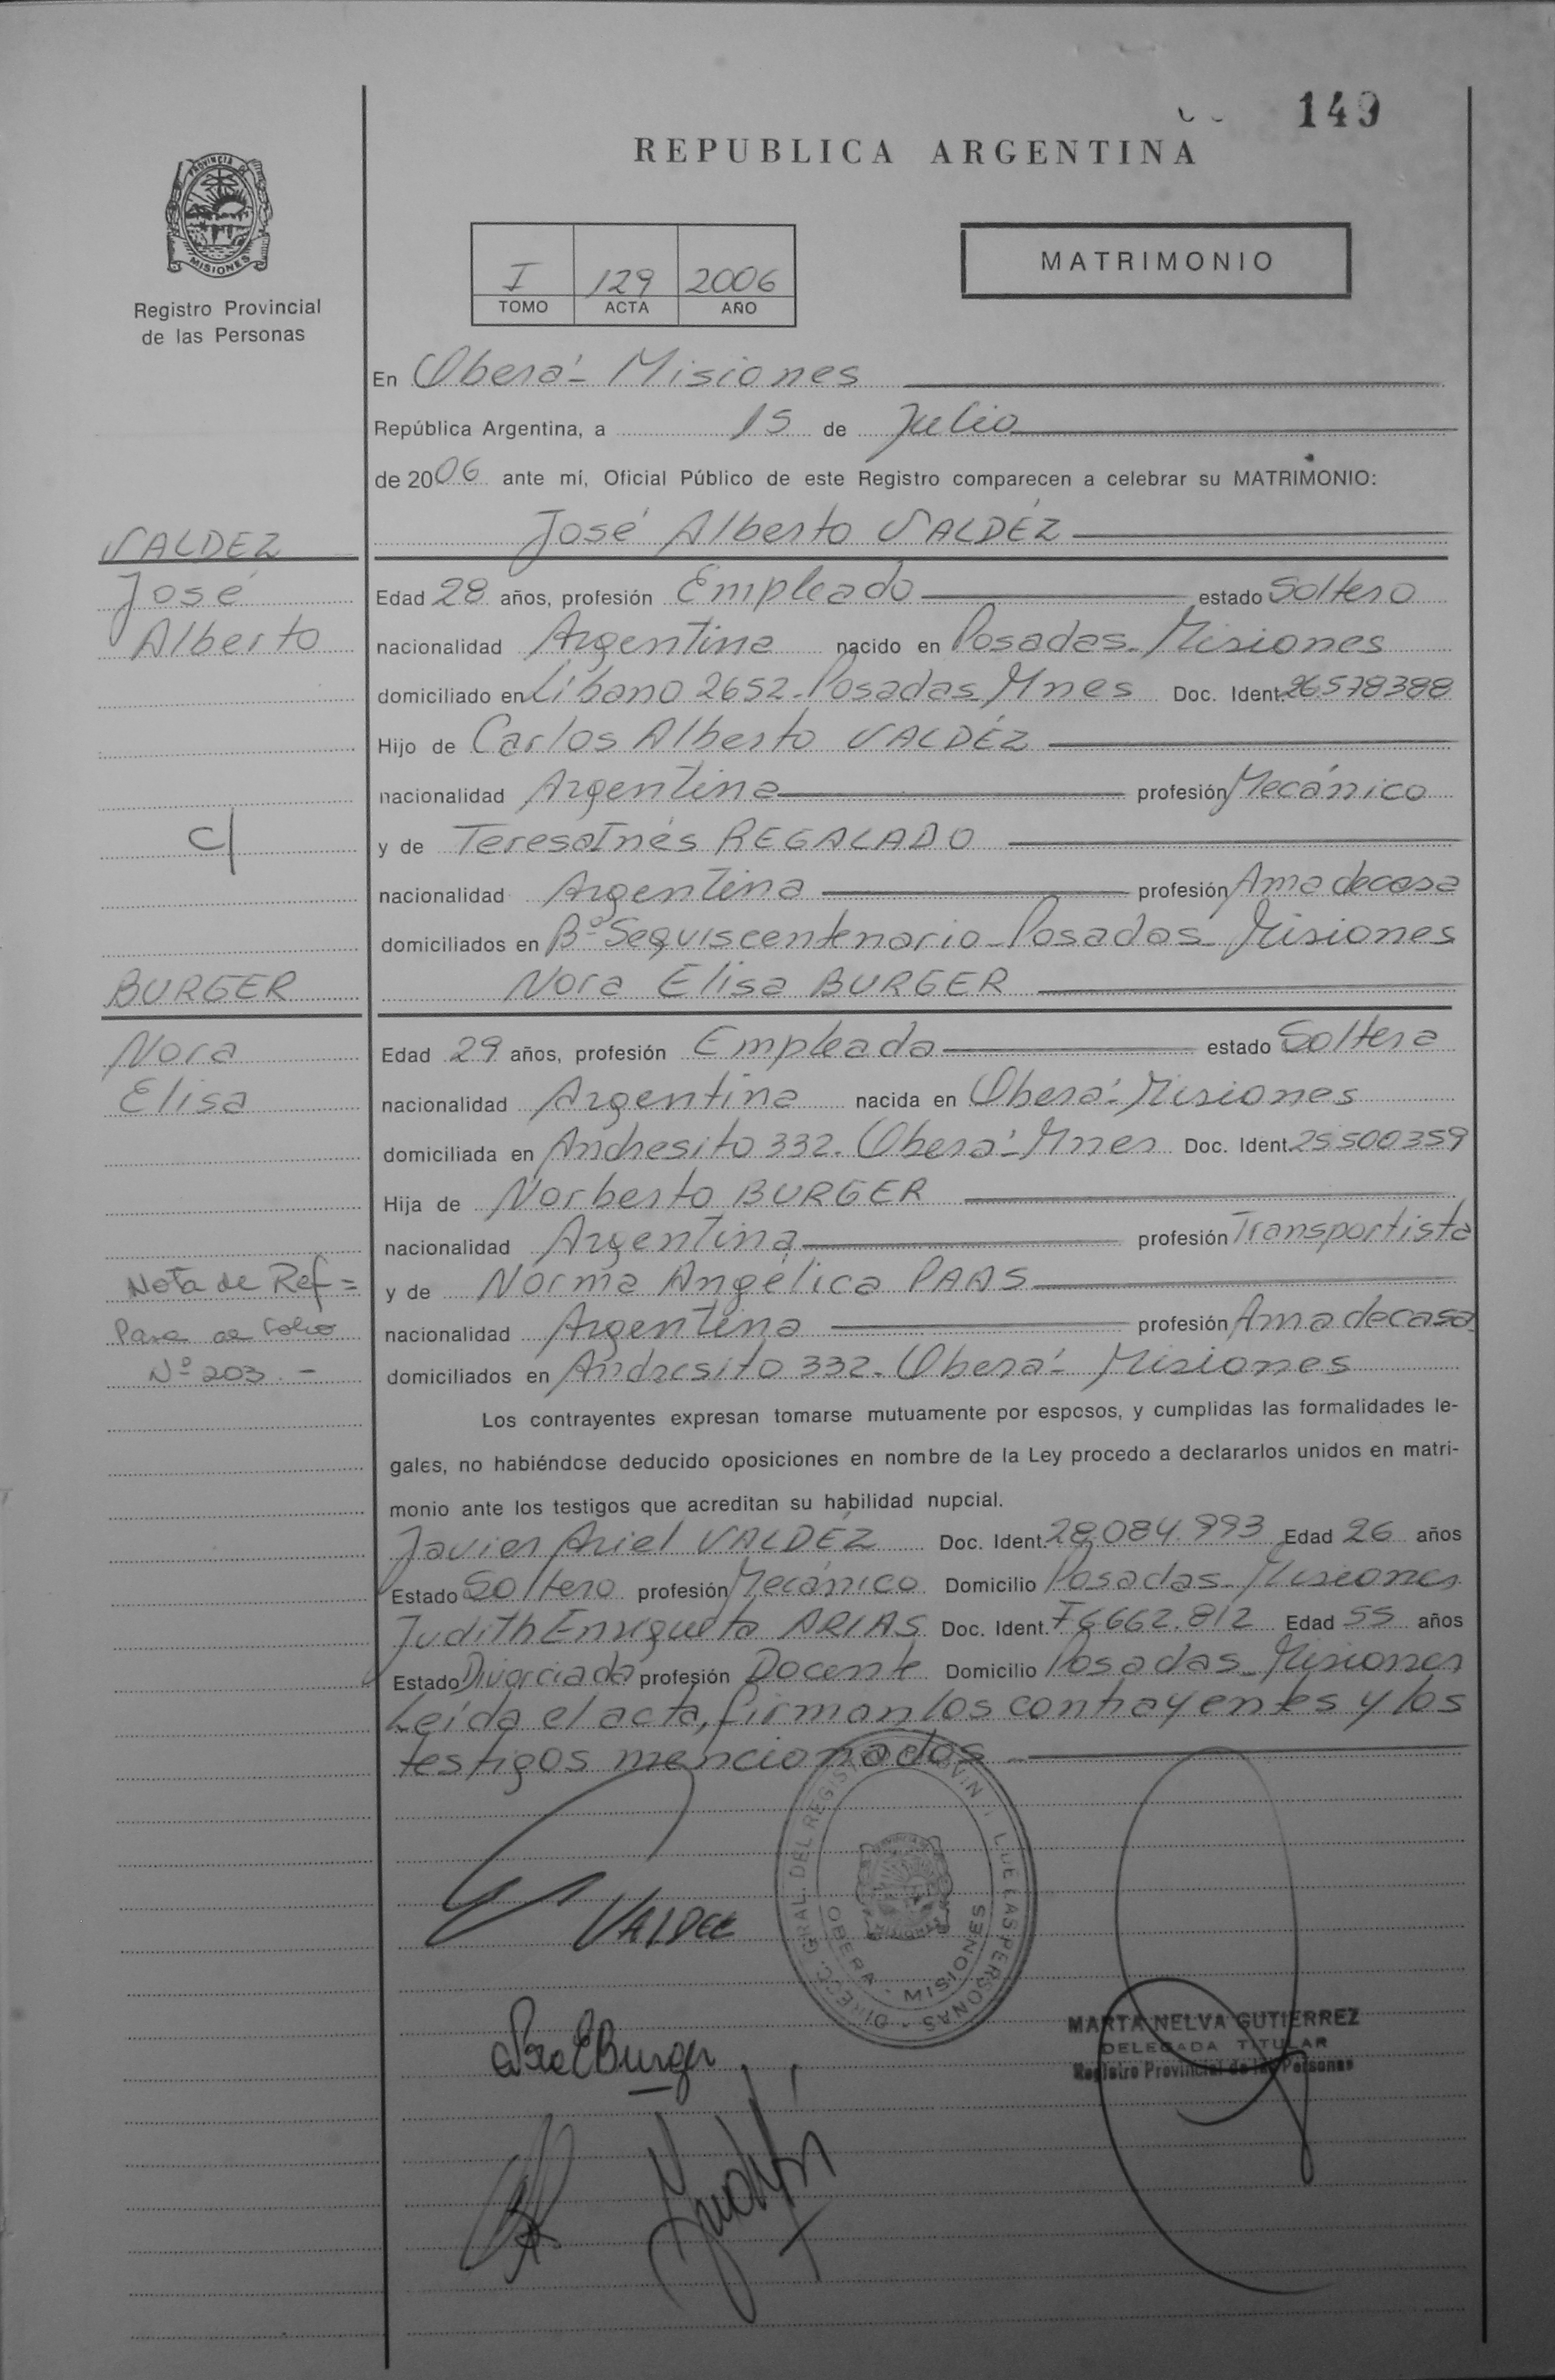 149
REPUBLICA ARGENTINA
PROVINCIA DE
MISIONES
Registro Provincial
de las Personas
I 129 2006
TOMO ACTA AÑO
MATRIMONIO
En Oberá - Misiones
República Argentina, a 15 de Julio
de 2006 ante mí, Oficial Público de este Registro comparecen a celebrar su MATRIMONIO:
José Alberto VALDÉZ
VALDEZ
José
Alberto
C/
BURGER
Nora
Elisa
Nota de Ref =
Pasa al Folio
Nº 203. -
Edad 28 años, profesión Empleado estado Soltero
nacionalidad Argentina nacido en Posadas - Misiones
domiciliado en Líbano 2652 - Posadas Mnes Doc. Ident. 26.578388
Hijo de Carlos Alberto VALDÉZ
nacionalidad Argentina profesión Mecánico
y de Teresa Inés REGALADO
nacionalidad Argentina profesión Ama de casa
domiciliados en Bº Sequiscentenario - Posadas - Misiones
Nora Elisa BURGER
Edad 29 años, profesión Empleada estado Soltera
nacionalidad Argentina nacida en Oberá - Misiones
domiciliada en Andresito 332. Oberá - Mnes Doc. Ident. 25500359
Hija de Norberto BURGER
nacionalidad Argentina profesión Transportista
y de Norma Angélica PAAS
nacionalidad Argentina profesión Ama de casa
domiciliados en Andresito 332. Oberá - Misiones
Los contrayentes expresan tomarse mutuamente por esposos, y cumplidas las formalidades le-
gales, no habiéndose deducido oposiciones en nombre de la Ley procedo a declararlos unidos en matri-
monio ante los testigos que acreditan su habilidad nupcial.
Javier Ariel VALDÉZ Doc. Ident. 28.084.993 Edad 26 años
Estado Soltero profesión Mecánico Domicilio Posadas - Misiones
Judith Enriqueta ARIAS Doc. Ident. F6662.812 Edad 55 años
Estado Divorciada profesión Docente Domicilio Posadas - Misiones
Leída el acta, firman los contrayentes y los
testigos mencionados -
VALDEZ
DIRECC. GRAL. DEL REGISTRO PROVIN DE LAS PERSONAS
OBERA - MISIONES
MARTA NELVA GUTIERREZ
DELEGADA TITULAR
Registro Provincial de las Personas
Nora E Burger
Judith